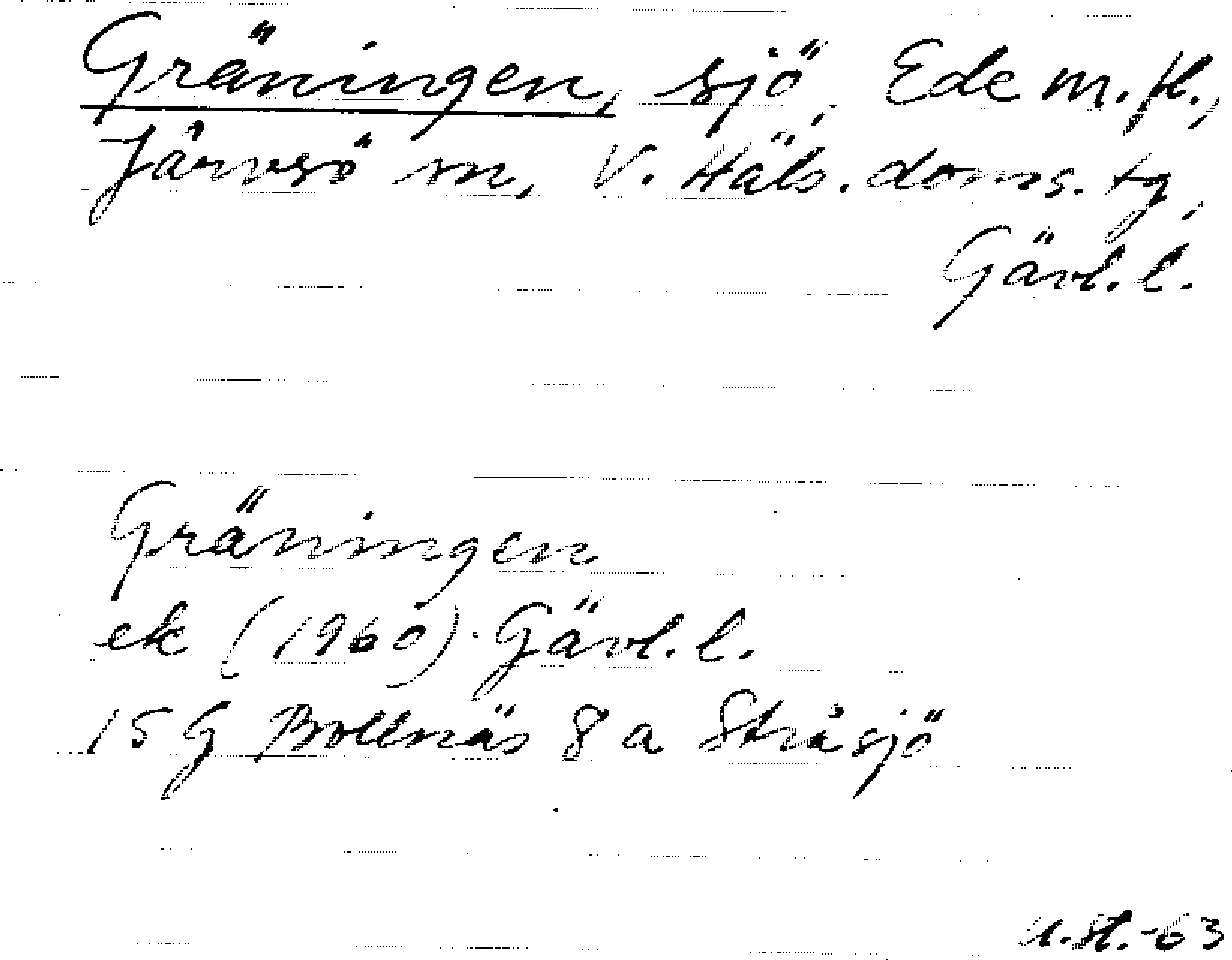 Gräningen, sjö, Ede m. fl.,
Järvsö sn, V. Häls. doms. tg,
Gävl. l.
Gräningen
ek (1960) Gävl. l.
15 G Bollnäs 8 a Stråsjö
U. St. -63